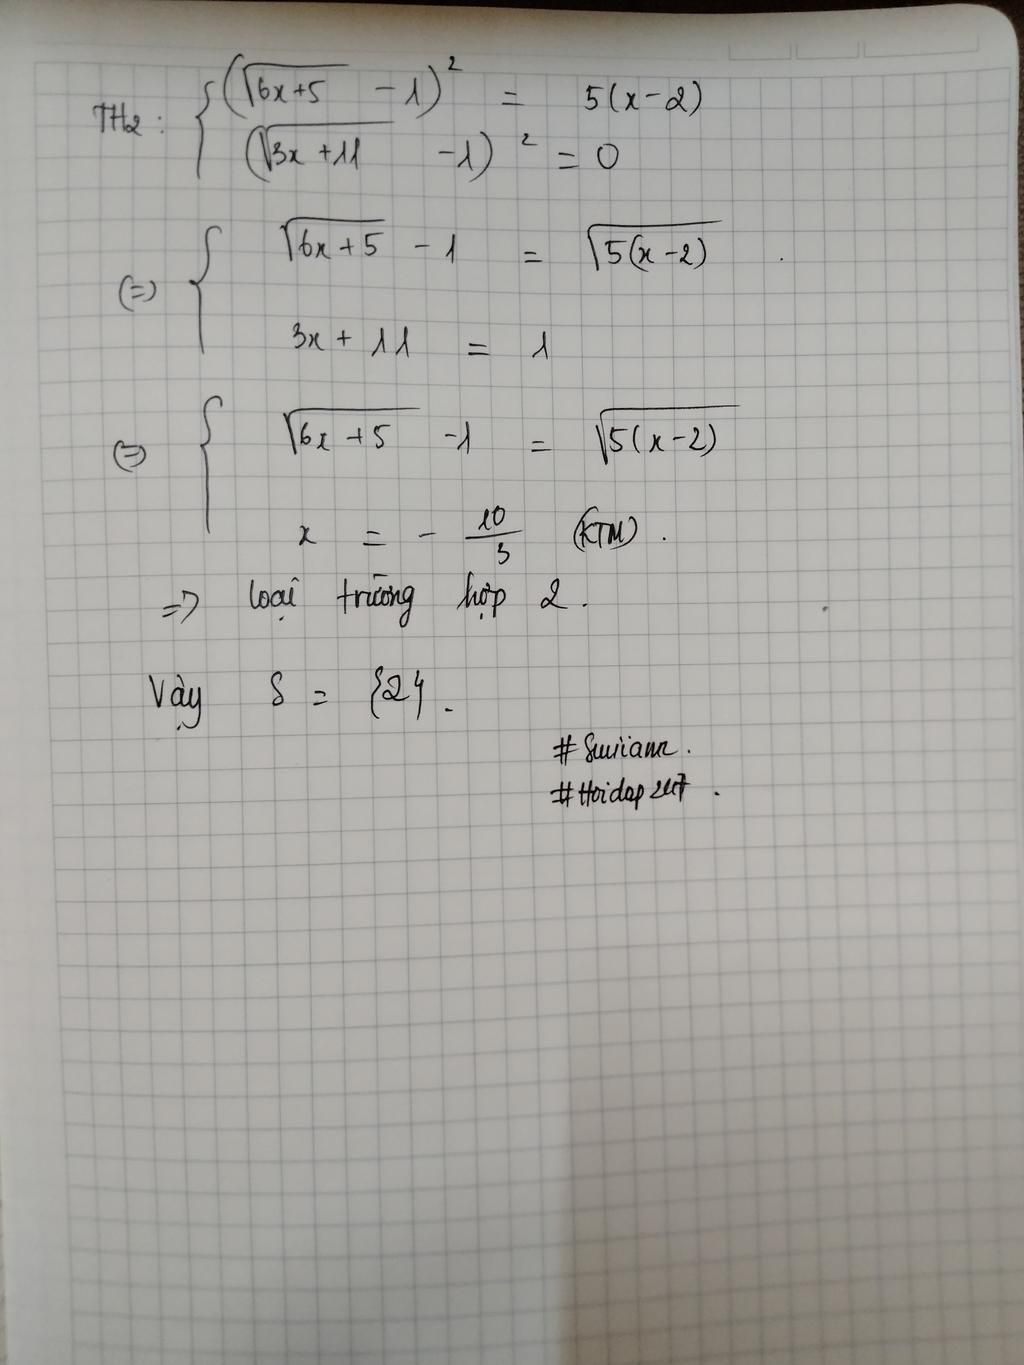 TH2: { (√(6x+5) - 1)² = 5(x-2)
(√(3x+11) -1)² = 0
(=) { √(6x+5) - 1 = √(5(x-2)) .
3x + 11 = 1
(=) { √(6x+5) -1 = √(5(x-2))
x = - 10/3 (KTM) .
=> loại trường hợp 2.
Vậy S = {2}.
#Hoidap247 .